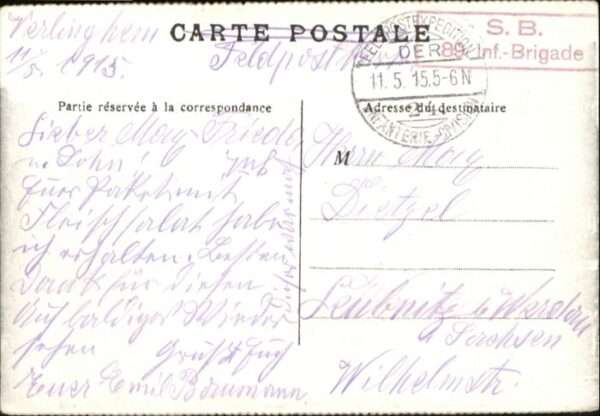 Verlinghem
11/5. 1915.
CARTE POSTALE
Feldpost
S. B.
89. Inf.-Brigade
FELDPOSTEXPEDITION
DER
11.5.15.5-6N
24.
INFANTERIE-DIVISION
Partie réservée à la correspondance
Lieber Max, Frieda
u. Sohn!
Euer Paket mit
Fleischsalat habe
ich erhalten. Besten
Dank für diesen
Auf baldiges Wieder
sehen Grüßt Euch
Euer Emil
Adresse du destinataire
M Herrn Max
Dietzel
Leubnitz b/Werdau
i. Sachsen
Wilhelmstr.